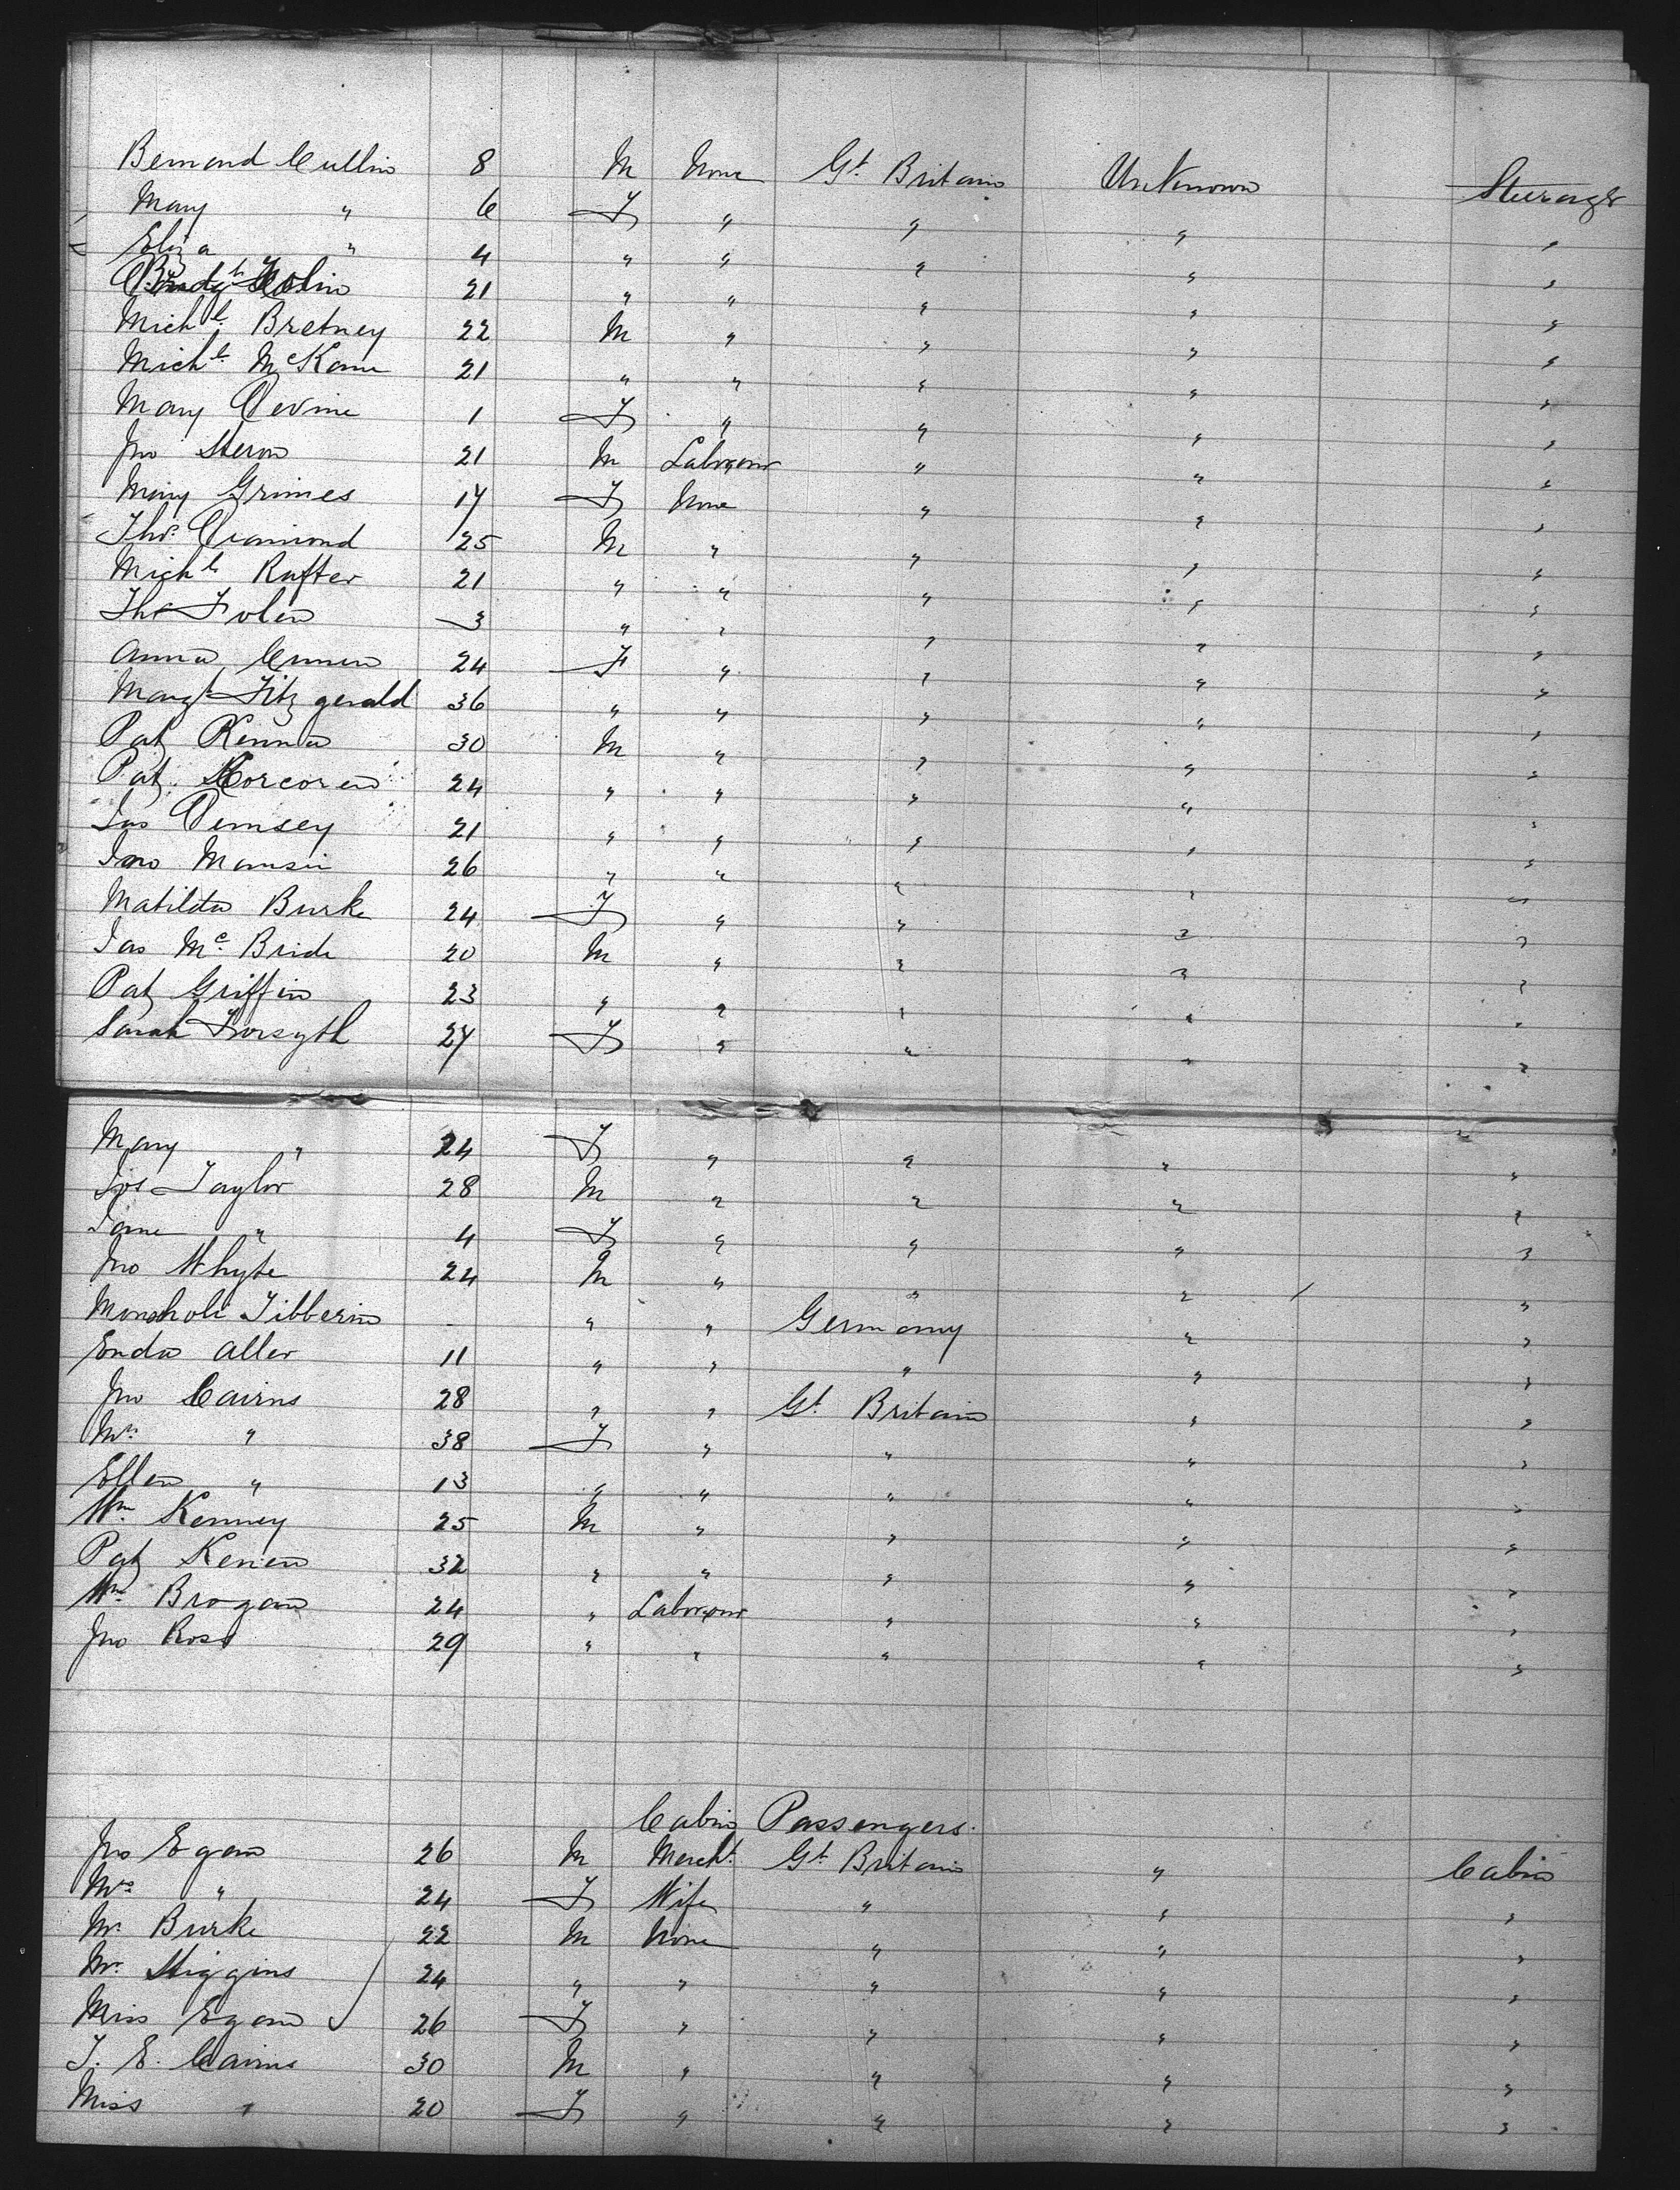 Bernard Cullin 8 M None Gt Britain Unknown Steerage
Mary " 6 F " " " "
Eliza " 4 " " " " "
21 " " " " "
Michl. Bretney 22 M " " " "
Michl. McKane 21 " " " " "
Mary Devine 1 F " " " "
Jno Heron 21 M Labourer " " "
Mary Grimes 17 F None " " "
Thos. Diamond 25 M " " " "
Michl Rafter 21 " " " " "
Thos Folen 3 " " " " "
Anna 24 F " " " "
Margt Fitzgerald 36 " " " " "
Pat Kenna 30 M " " " "
Pat. Corcoren 24 " " " " "
Jas Demsey 21 " " " " "
Jno 26 " " " " "
Matilda Burke 24 F " " " "
Jas Mc. Bride 20 M " " " "
Pat Griffin 23 " " " " "
Sarah Forsyth 27 F " " " "
Mary " 24 F " " " "
Jos Taylor 28 M " " " "
Jane " 4 F " " " "
Jno Whyte 24 M " " " "
Tibberin - " " Germany " "
Enda Aller 11 " " " " "
Jno Cairns 28 " " Gt. Britain " "
Mrs. " 38 F " " " "
Ellen " 13 " " " " "
Wm. Kenney 25 M " " " "
Pat Kenien 32 " " " " "
Wm. Brogan 24 " Labourer " " "
Jno Ross 29 " " " " "
Cabin Passengers.
Jno Egan 26 M Mercht. Gt. Britain " Cabin
Mrs " 24 F Wife " " "
Mr. Burke 22 M None " " "
Mr. Higgins 24 " " " " "
Miss Egan 26 F " " " "
J. E. Cairns 30 M " " " "
Miss " 20 F " " " "